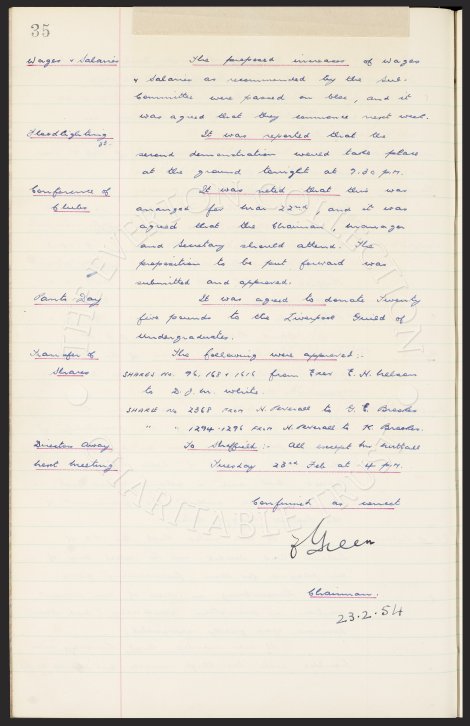 35
Wages & Salaries The proposed increases of wages
& Salaries as recommended by the Sub-
Committee were passed en bloc, and it
was agreed that they commence next week.
Floodlighting It was reported that the
second demonstration would take place
at the ground tonight at 7.30 p.m.
Conference of It was noted that this was
Clubs arranged for Mar 22nd, and it was
agreed that the Chairman, Manager
and Secretary should attend. The
proposition to be put forward was
submitted and approved.
Panto Day It was agreed to donate Twenty
five pounds to the Liverpool Guild of
Undergraduates.
Transfer of The following were approved :-
Shares SHARES No. 96, 168 & 1616 from Exor E. H.
to D. J. W. White.
SHARE No 2368 FROM H. to G. E. Brookes
" " 1294-1296 FROM H. to K. Brookes.
Directors Away To Sheffield :- All except Mr Nuttall
Next Meeting Tuesday 23rd Feb at 4 p.m.
Confirmed as correct
Green
Chairman.
23.2.54
THE EVERTON COLLECTION
CHARITABLE TRUST